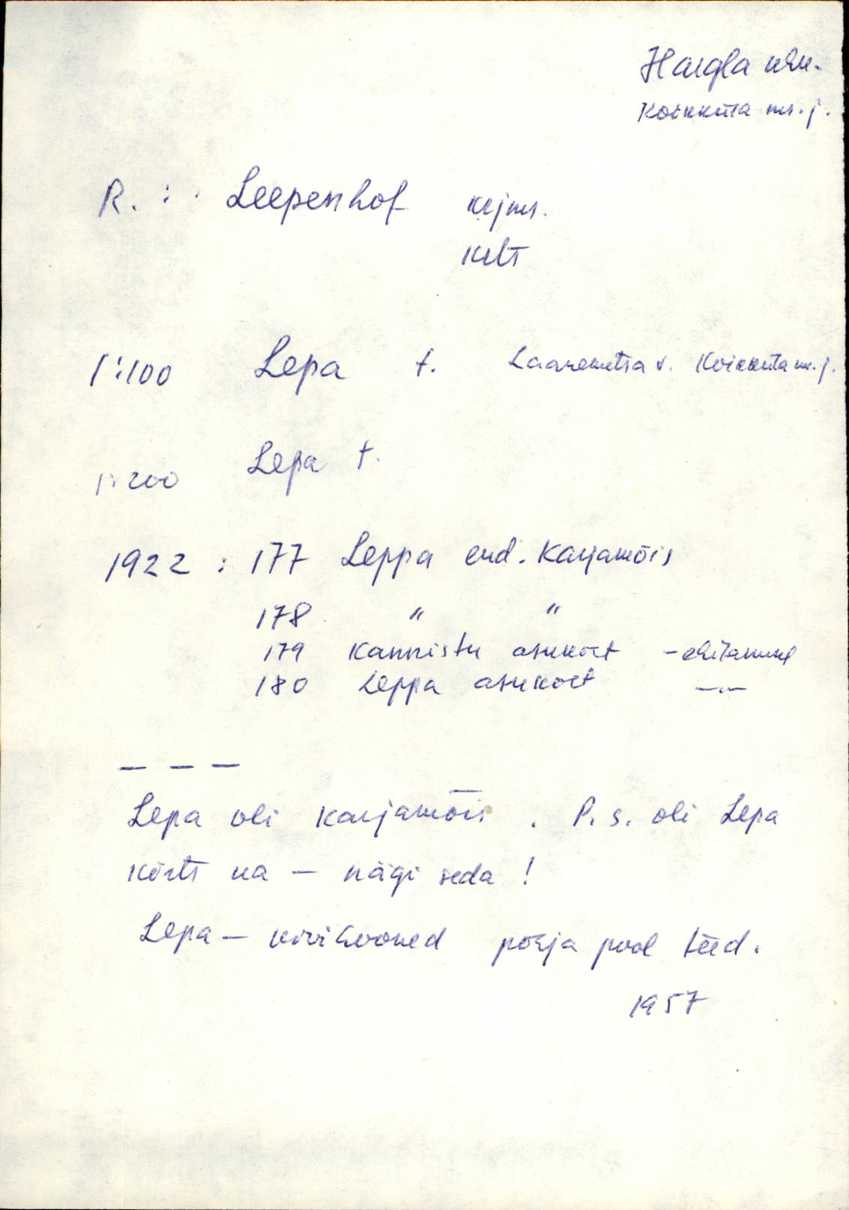 Hargla khk.
Koikküla ms. j.
R. : . Leepenhof kjms.
Kõlts
1:100 Lepa t. Laanemetsa v. Koikküla m. j.
1:200 Lepa t.
1922 : 177 Leppa end. karjamõis
178 " "
179 Kannistu asukoct - ehitamisel
180 Leppa asukoct —"—
— — —
Lepa oli karjamõis . P. s. oli Lepa
kõrts ka — nägi seda !
Lepa — kivihooned põhja pool teed.
1957